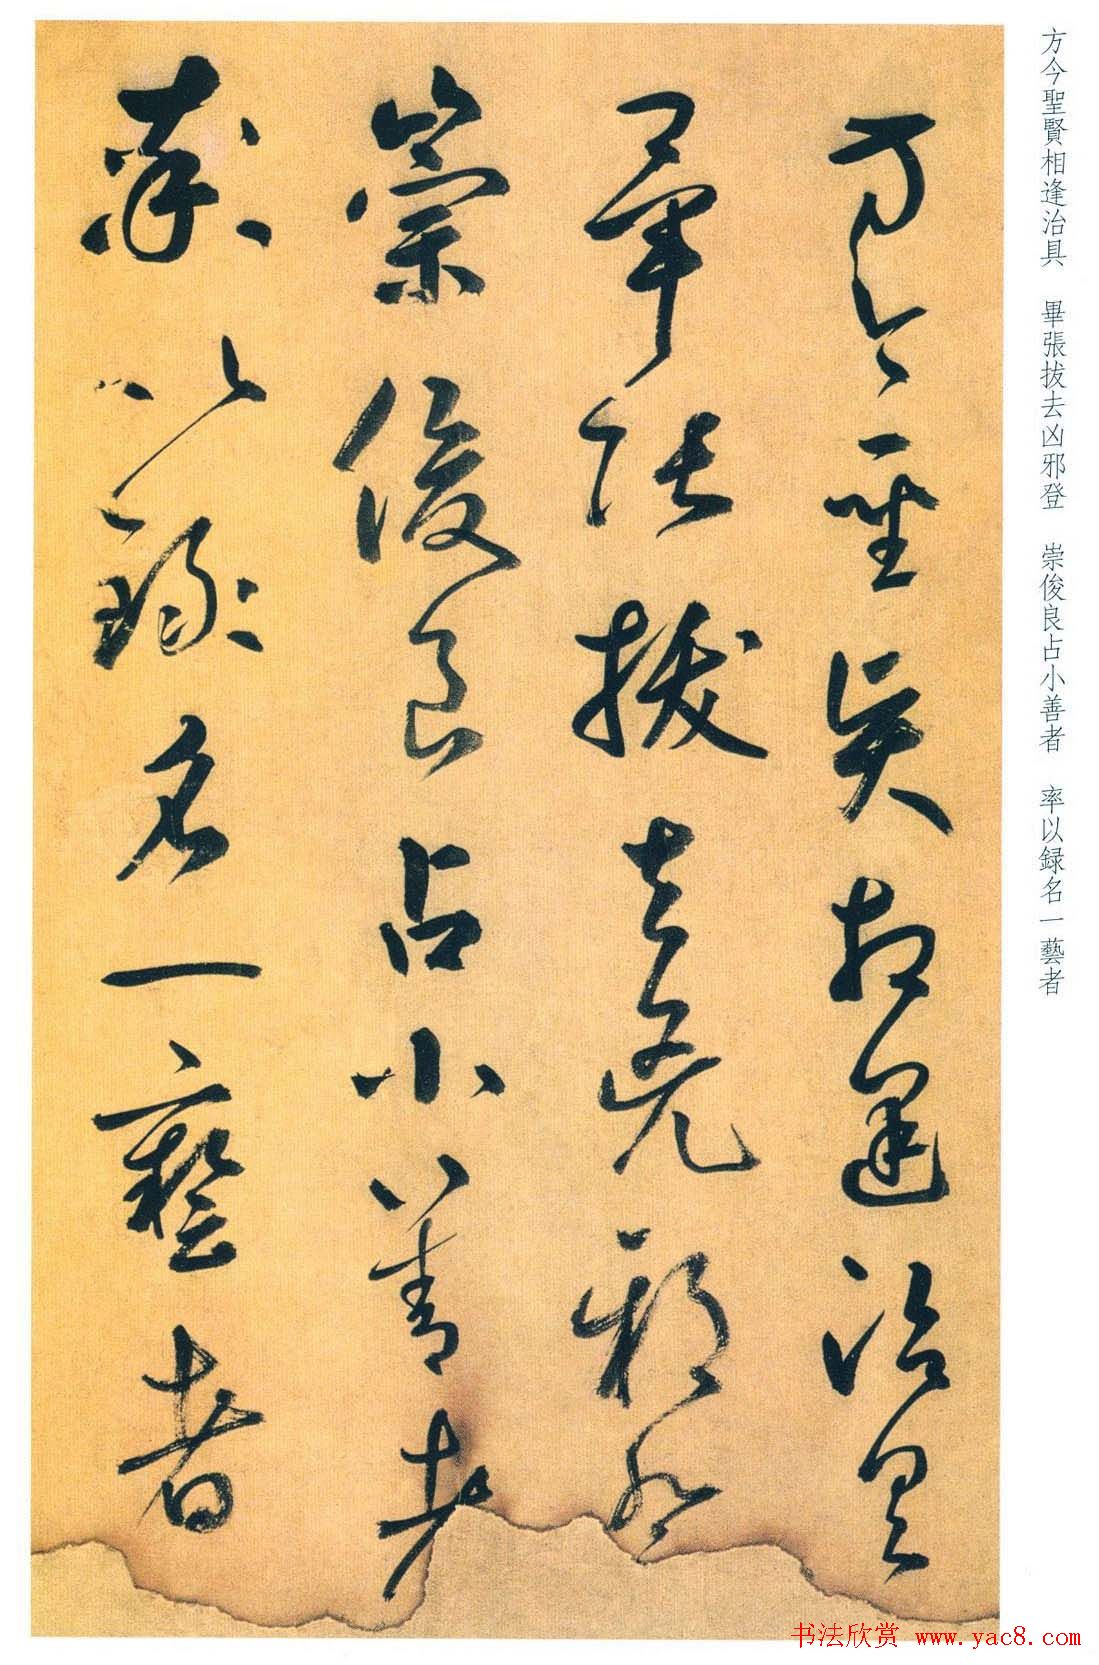 方今聖賢相逢治具　畢張拔去凶邪登　崇俊良占小善者　率以録名一藝者
方今聖賢相逢治具
畢張拔去兇邪登
崇俊良占小善者
率以録名一藝者
书法欣赏 www.yac8.com